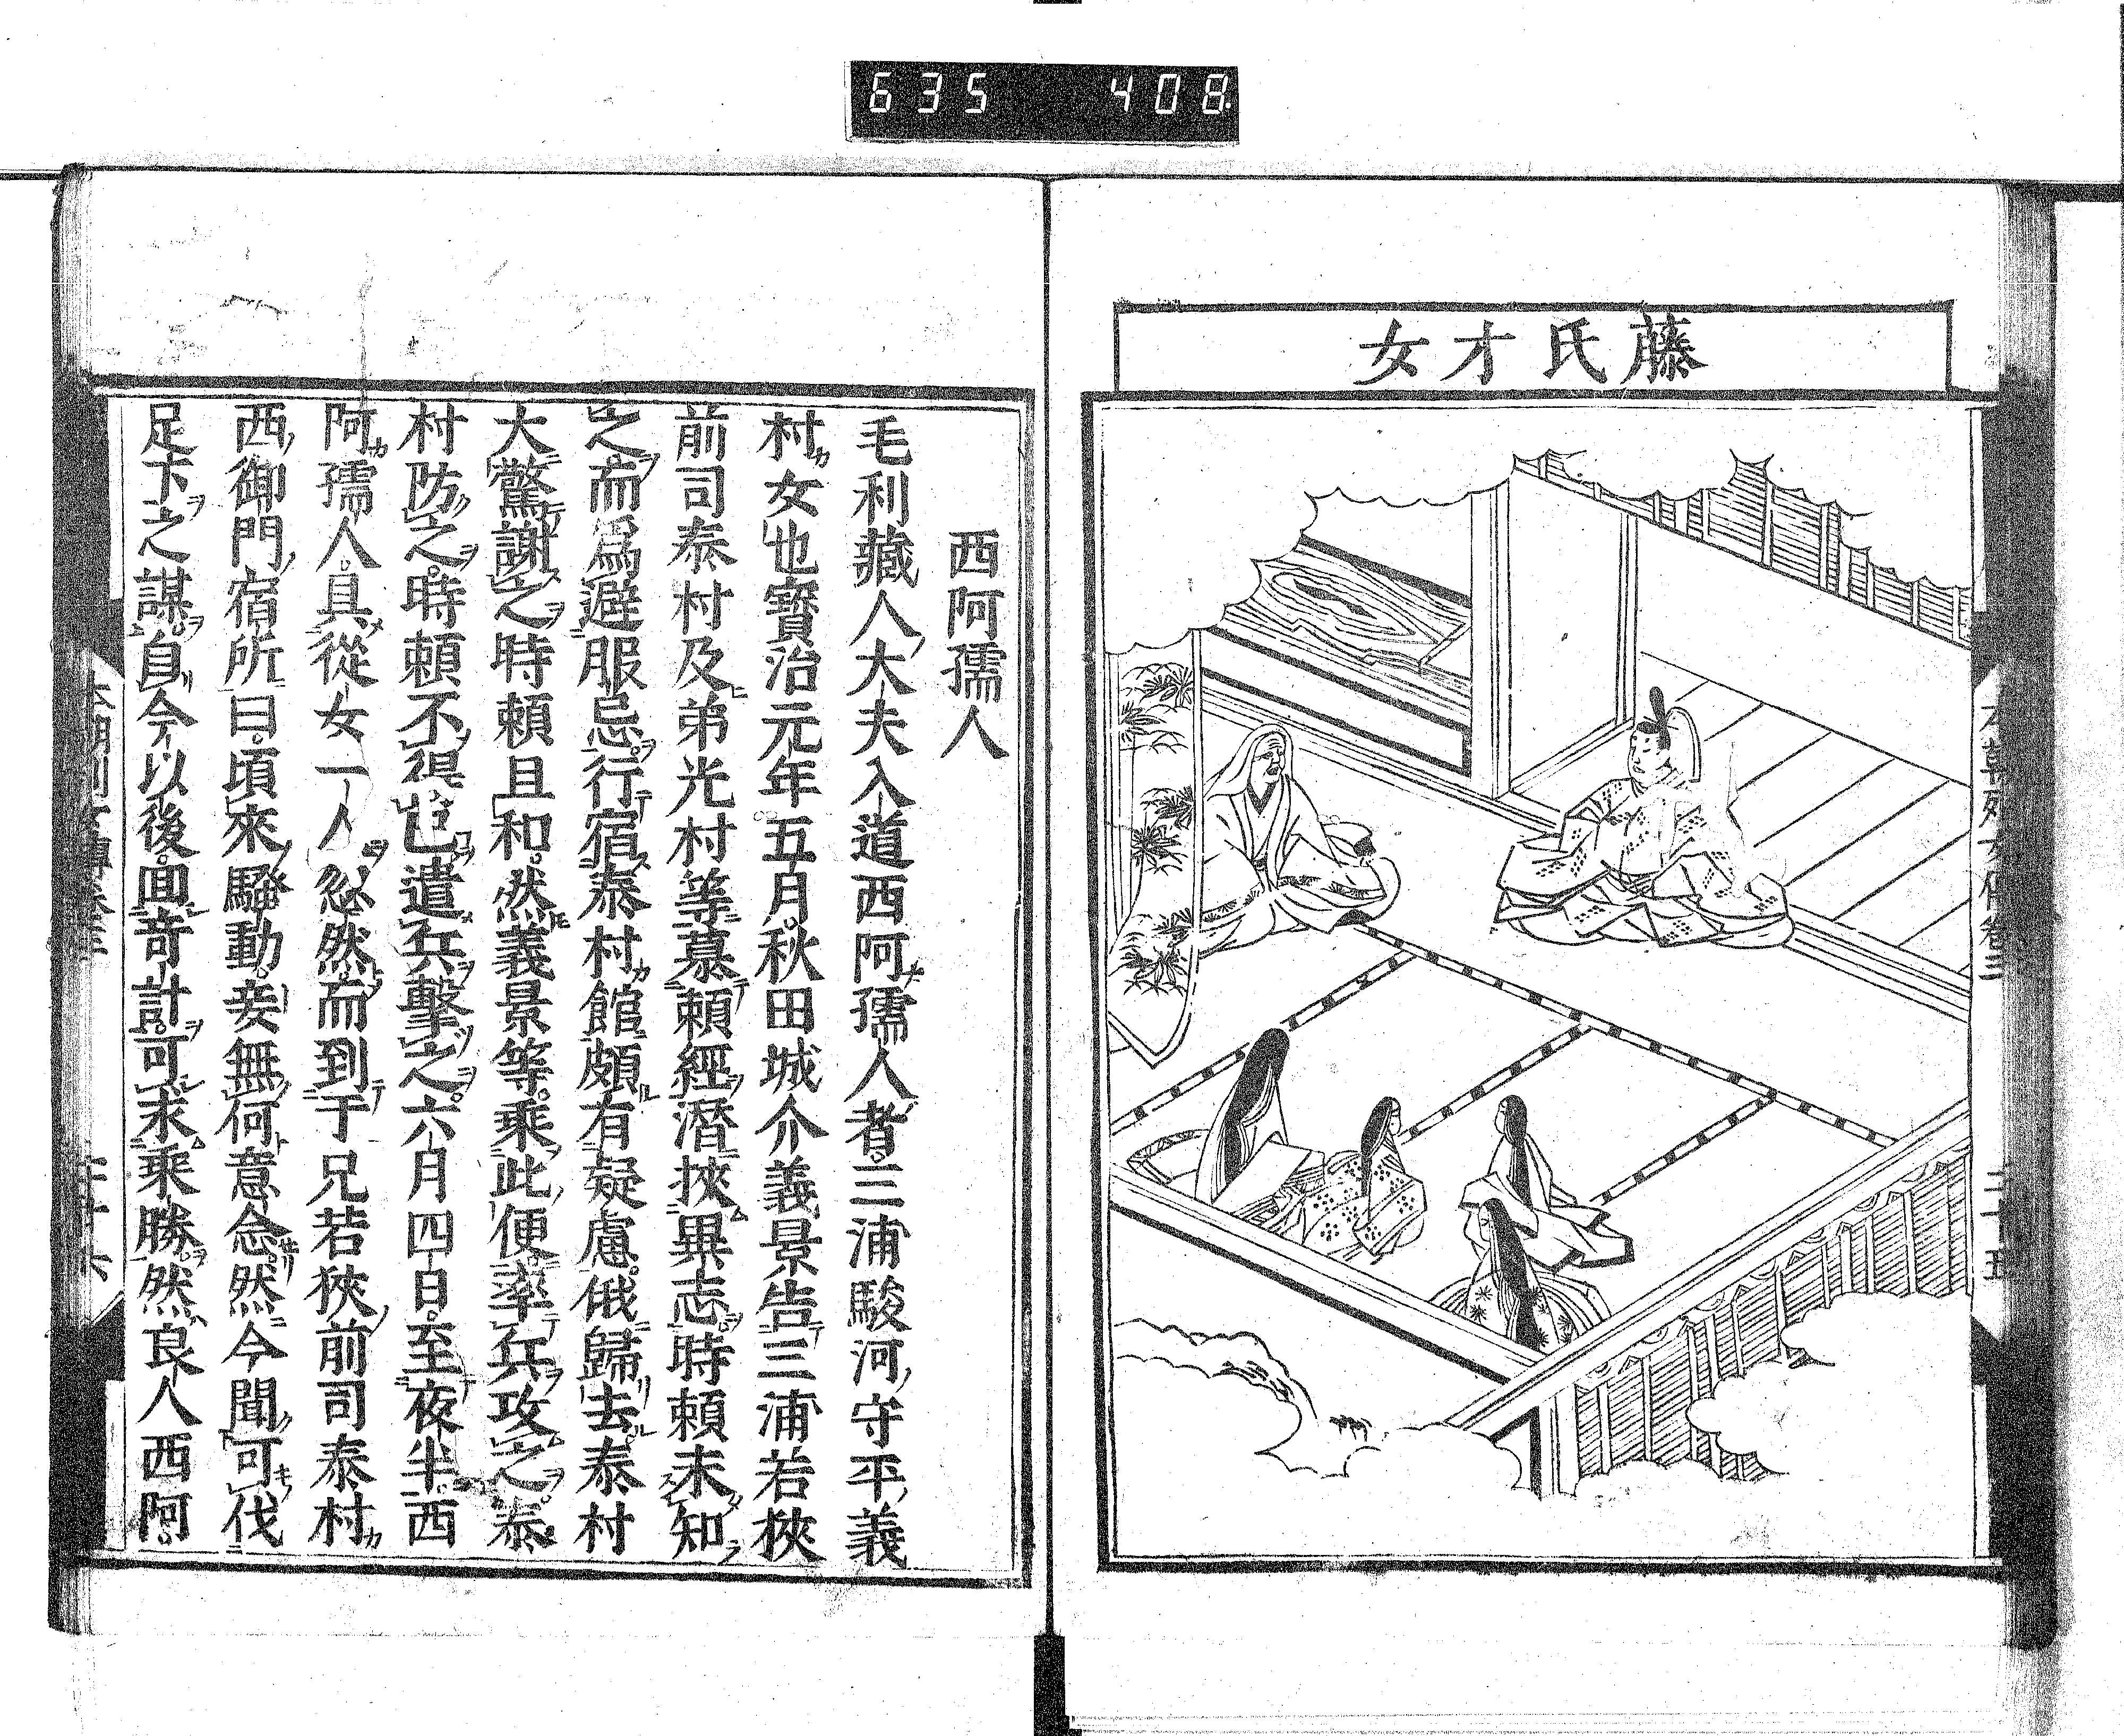 635 408
藤氏才女
西阿孺人
毛利藏人大夫入道西阿孺人者三浦駿河守平義
村女也寶治元年五月秋田城介義景告三浦若狹
前司泰村及弟光村等慕頼經潛挾異志時頼未知
之而爲避服忌行宿泰村館頗有疑慮俄歸去泰村
大驚謝之時頼且和然義景等乘此便率兵攻之泰
村防之時頼不得已遣兵擊之六月四日至夜半西
阿孺人具從女一人忽然而到于兄若狹前司泰村
西御門宿所曰頃來騷動妾無何意念然今聞可伐
足下之謀自今以後回奇計可求乘勝然良人西阿